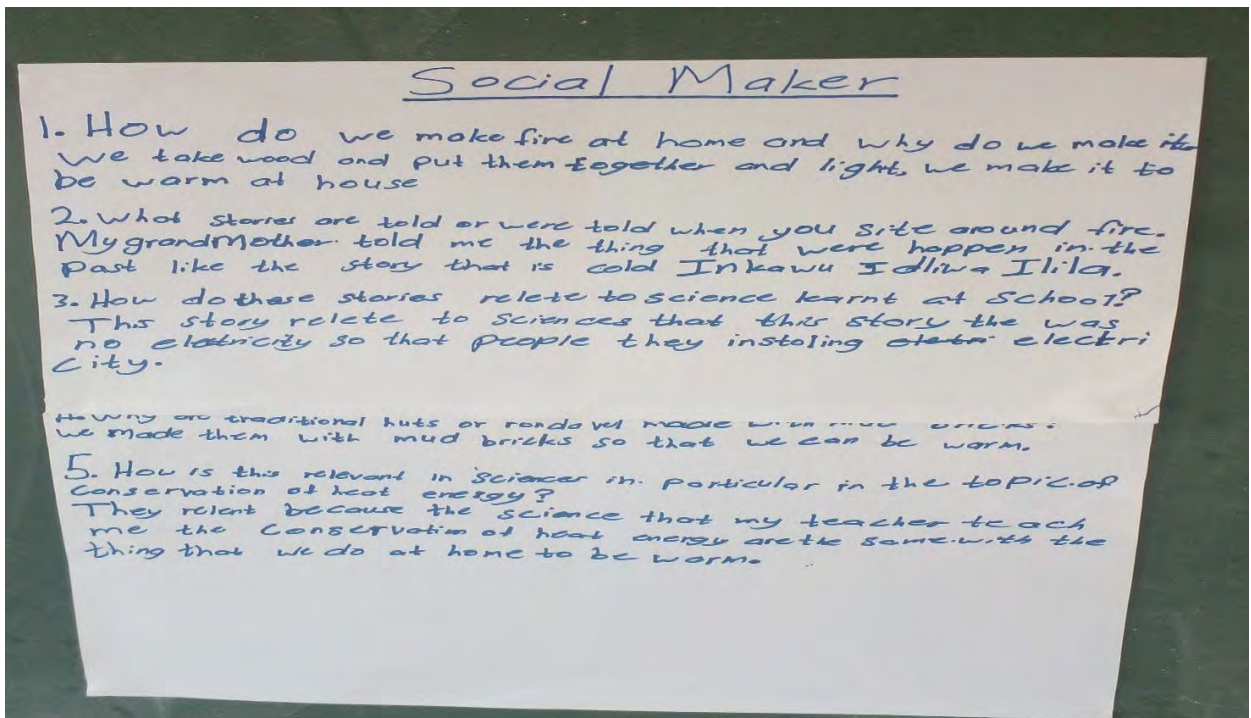 Social Maker
1. How do we make fire at home and why do we make it
We take wood and put them together and light, we make it to
be warm at house
2. What stories are told or were told when you site around fire.
My grandMother told me the thing that were happen in the
past like the story that is cold Inkawu Idliwa Ilila.
3. How do these stories relete to science learnt at School?
This story relete to Sciences that this story the was
no elatricity so that people they instoling electri
City.
4. Why are traditional huts or rondavel made with mud bricks?
we made them with mud bricks so that we can be warm.
5. How is this relevant in Sciences in particular in the topic of
Conservation of heat energy?
They relent because the science that my teacher teach
me the Conservation of heat energy are the same with the
thing that we do at home to be warm.